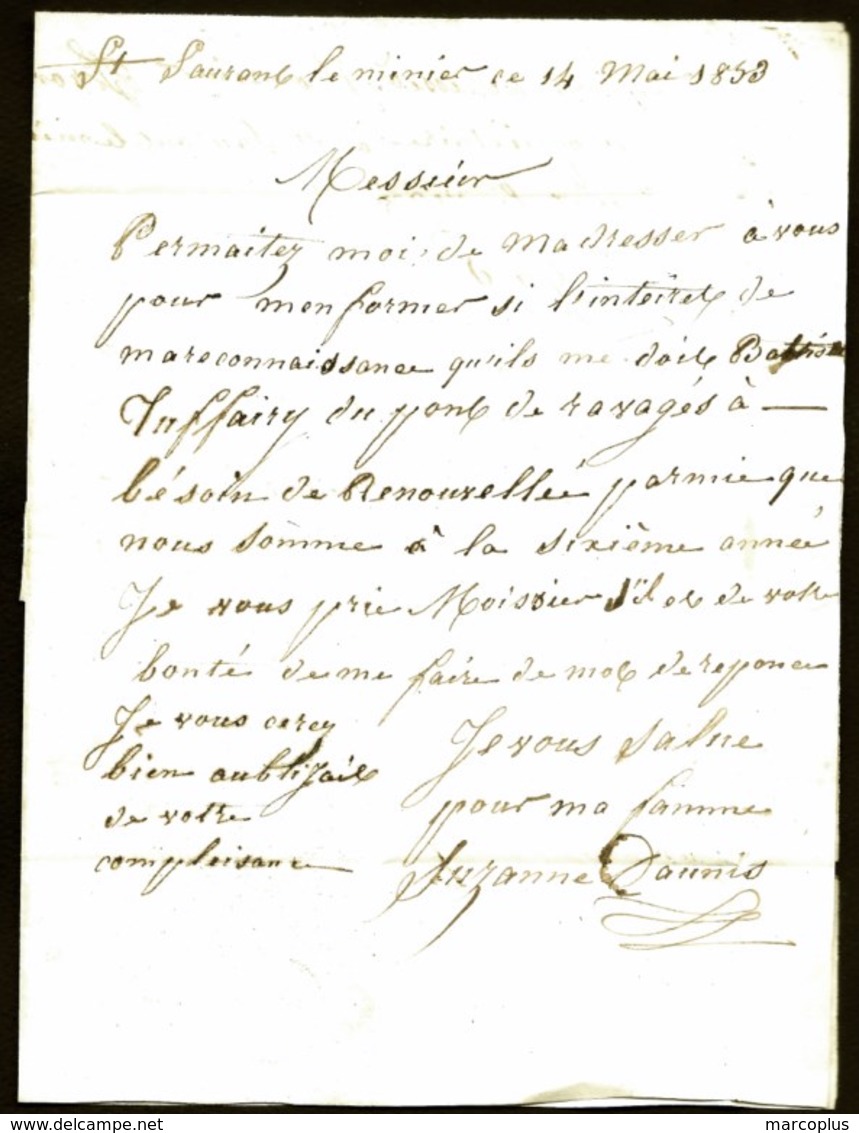 St Laurent le minier ce 14 Mai 1853
Messiur
Permaitez moi de madresser à vous
pour menformer si lintoiret de
mareconnaissance qu'ils me doit Batiste
Tuffairy du pont de ravagés à —
bésoin de Renouvelleé parmie que
nous somme à la sixiême anneé
Je vous prie Moissieur s'il et de votre
bonté de me faire de mot de reponce
Je vous cerey
bien aubligait
de votre
complaisance
Je vous salue
pour ma famme
Suzanne Daunis
www.delcampe.net
marcoplus